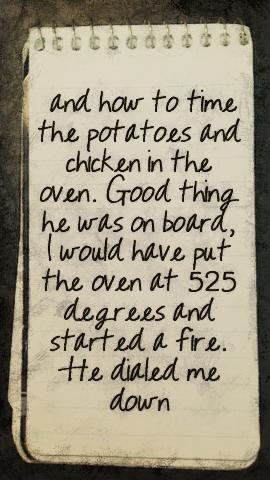 and how to time
the potatoes and
chicken in the
oven. Good thing
he was on board,
I would have put
the oven at 525
degrees and
started a fire.
He dialed me
down